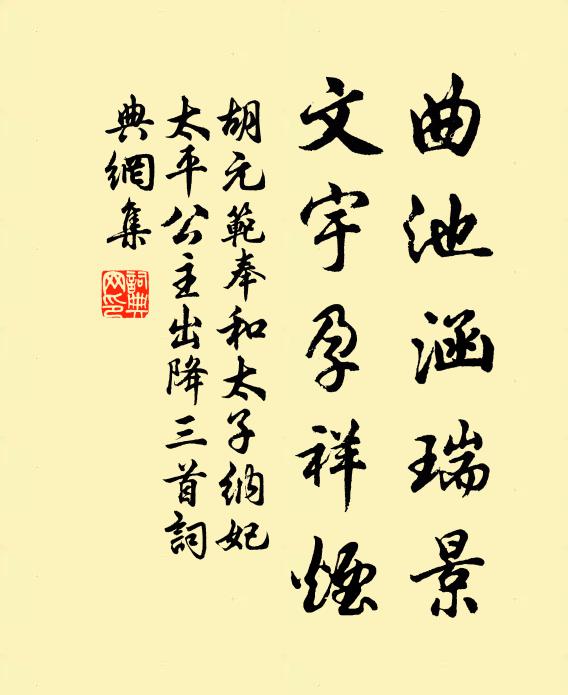 曲池涵瑞景
文宇孕祥煙
胡元範奉和太子納妃
太平公主出降三首詞
典網集
詞典網印